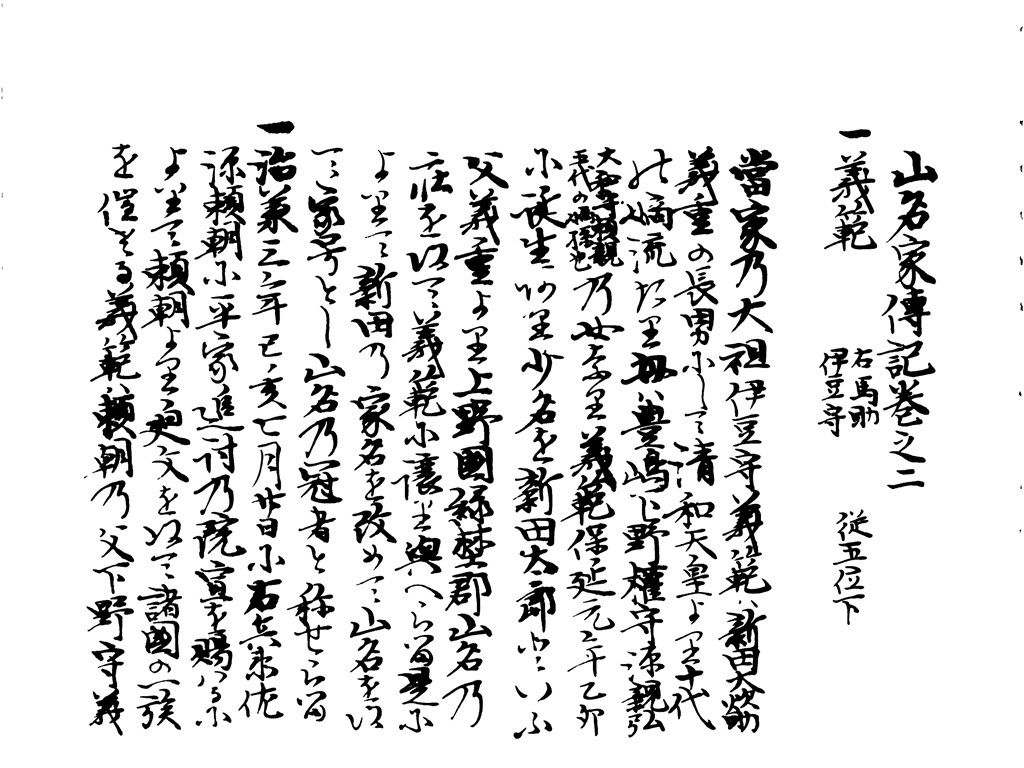 山名家傳記巻之二
一 義範 右馬助 伊豆守 従五位下
當家乃大祖伊豆守義範ハ新田大炊助
義重の長男にして清和天皇より十代
の嫡流たり母ハ豊嶋下野権守源親弘
大和守頼親
五代の嫡孫也
乃女なり義範保延元年乙卯
に誕生あり少名を新田太郎といふ
父義重より上野國緑埜郡山名乃
庄を以て義範に譲り與へらる是に
よりて新田乃家名を改めて山名を以
て家号とし山名乃冠者と称せらる
一 治承三年己亥七月廿日に右兵衛佐
源頼朝に平家進討乃院宣を賜ハるに
よりて頼朝より廻文を以て諸國の一族
を催さる義範ハ頼朝乃父下野守義